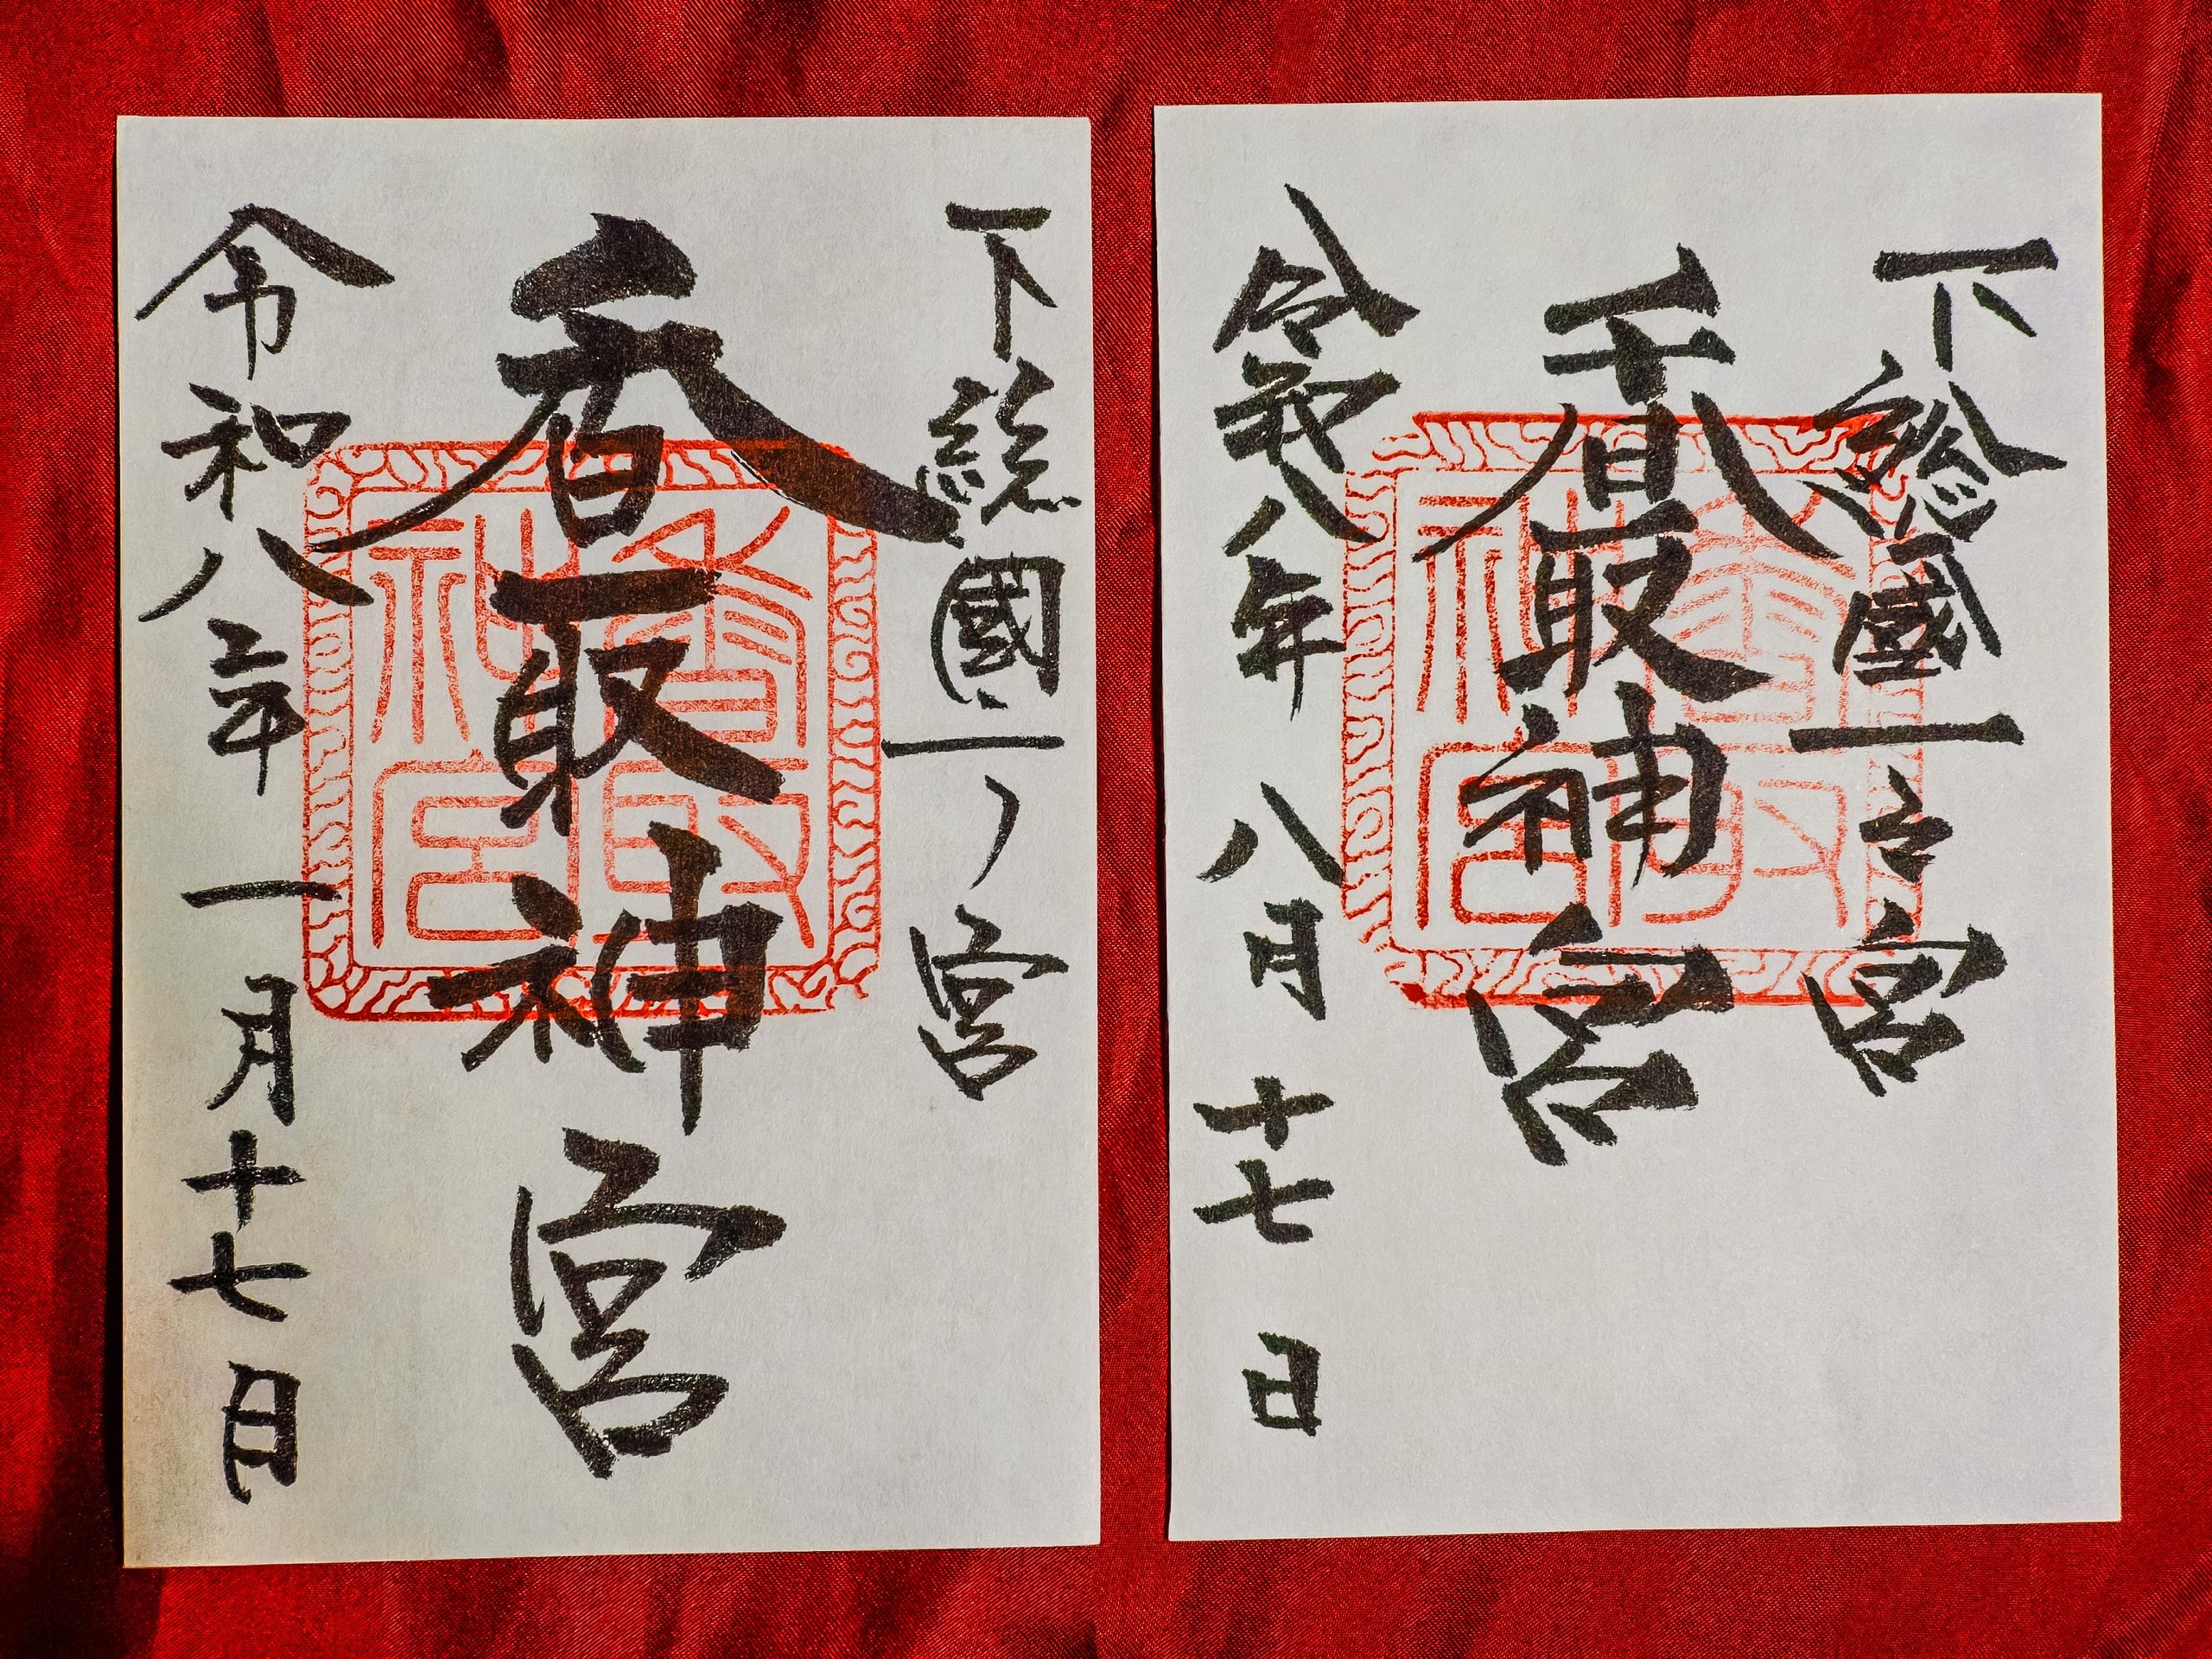 下總國一之宮
香取神宮
香取神宮
令和八年 八月十七日
下總國一ノ宮
香取神宮
香取神宮
令和八年 一月十七日